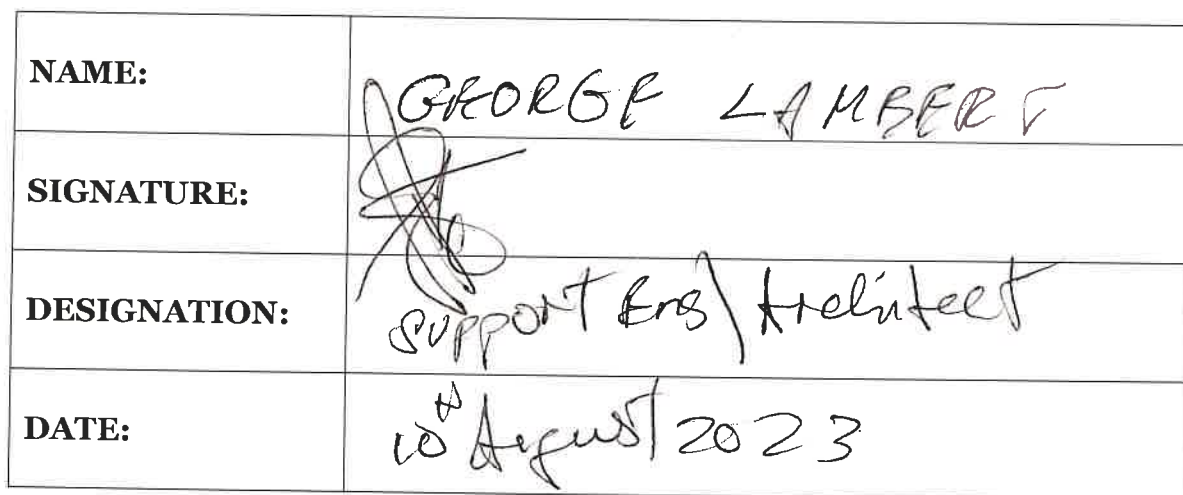 NAME: GEORGE LAMBERT
SIGNATURE:
DESIGNATION: Support Eng\ Architect
DATE: 10th August 2023